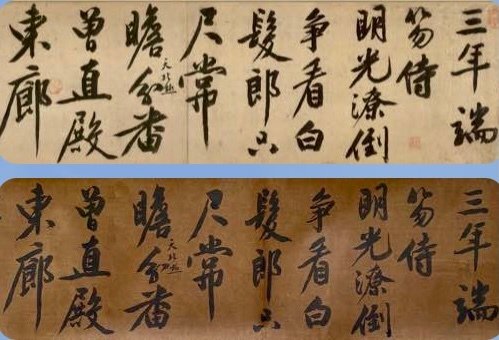 三年端
笏侍
明光潦倒
争看白
髮郎只
尺常
瞻分番
天北極
曾直殿
東廊
三年端
笏侍
明光潦倒
争看白
髮郎只
尺常
瞻分番
天北極
曾直殿
東廊